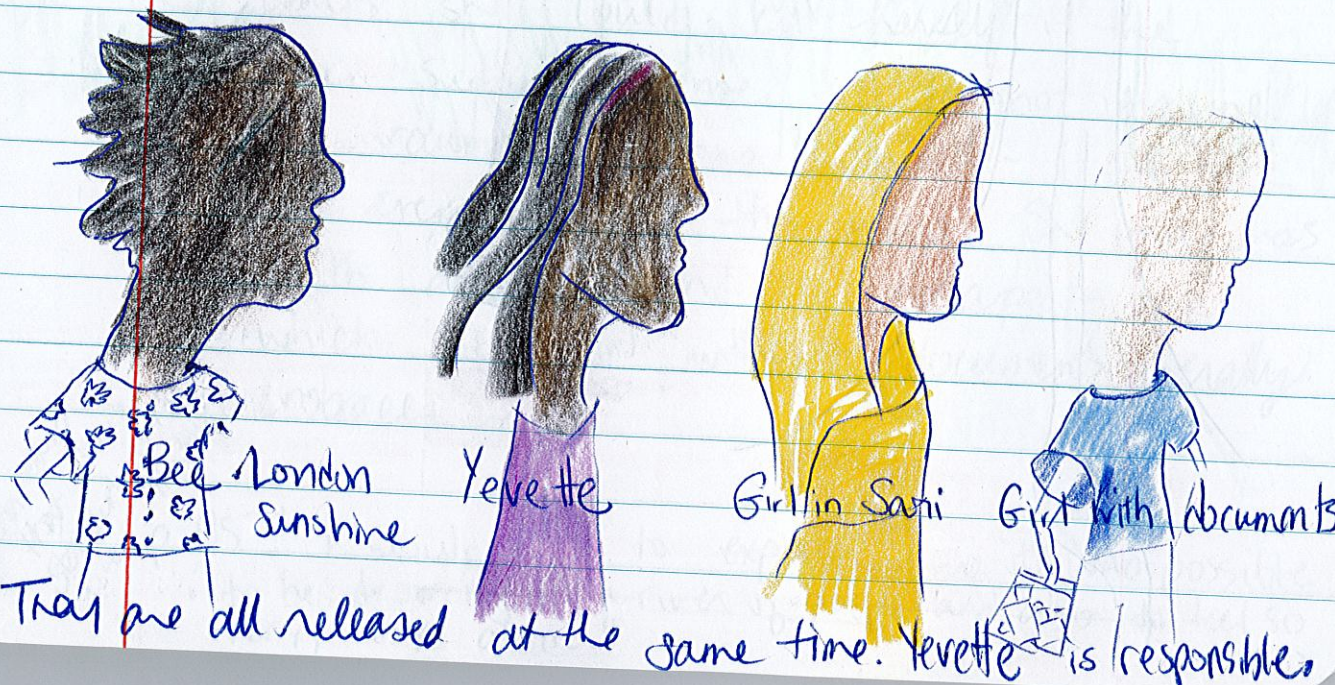 Bee. London
Sunshine
Yevette
Girl in Sari
Girl with documents
They are all released at the same time. Yevette is responsible.